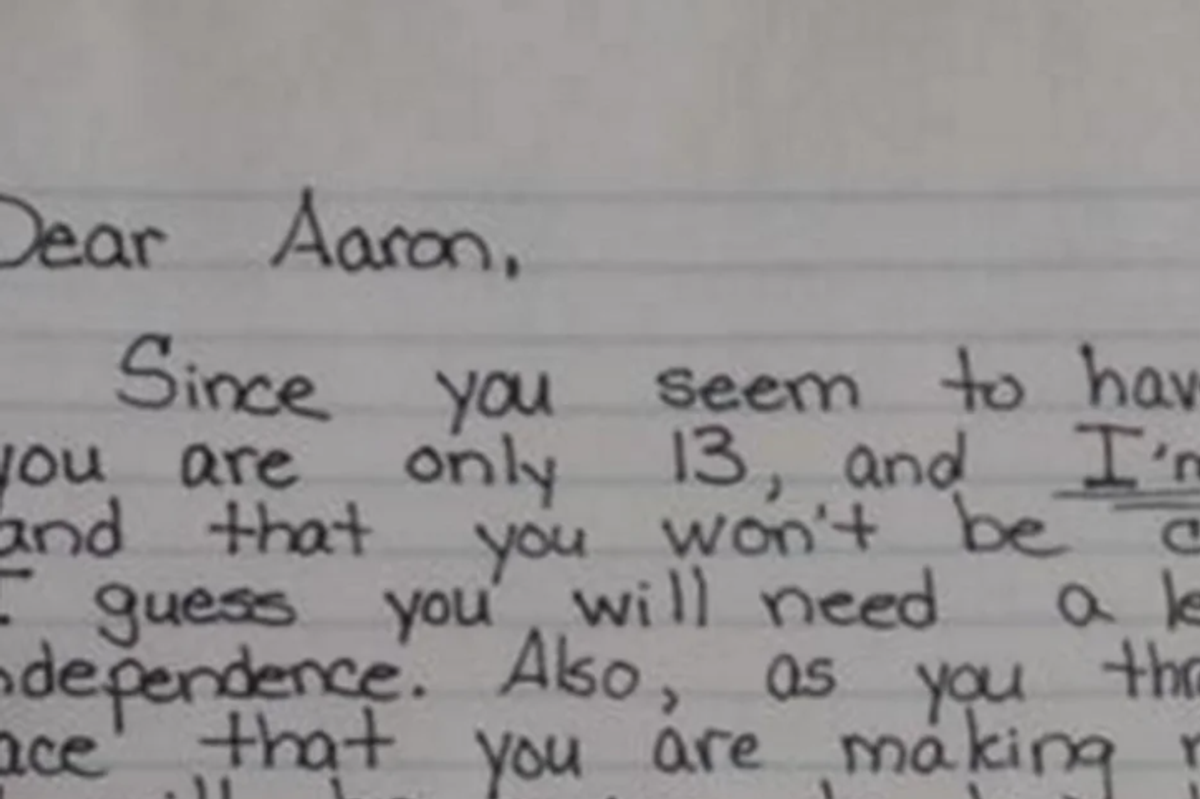 Dear Aaron,
Since you seem to hav
you are only 13, and I'm
and that you won't be c
I guess you will need a le
ndependence. Also, as you thr
ace that you are making m